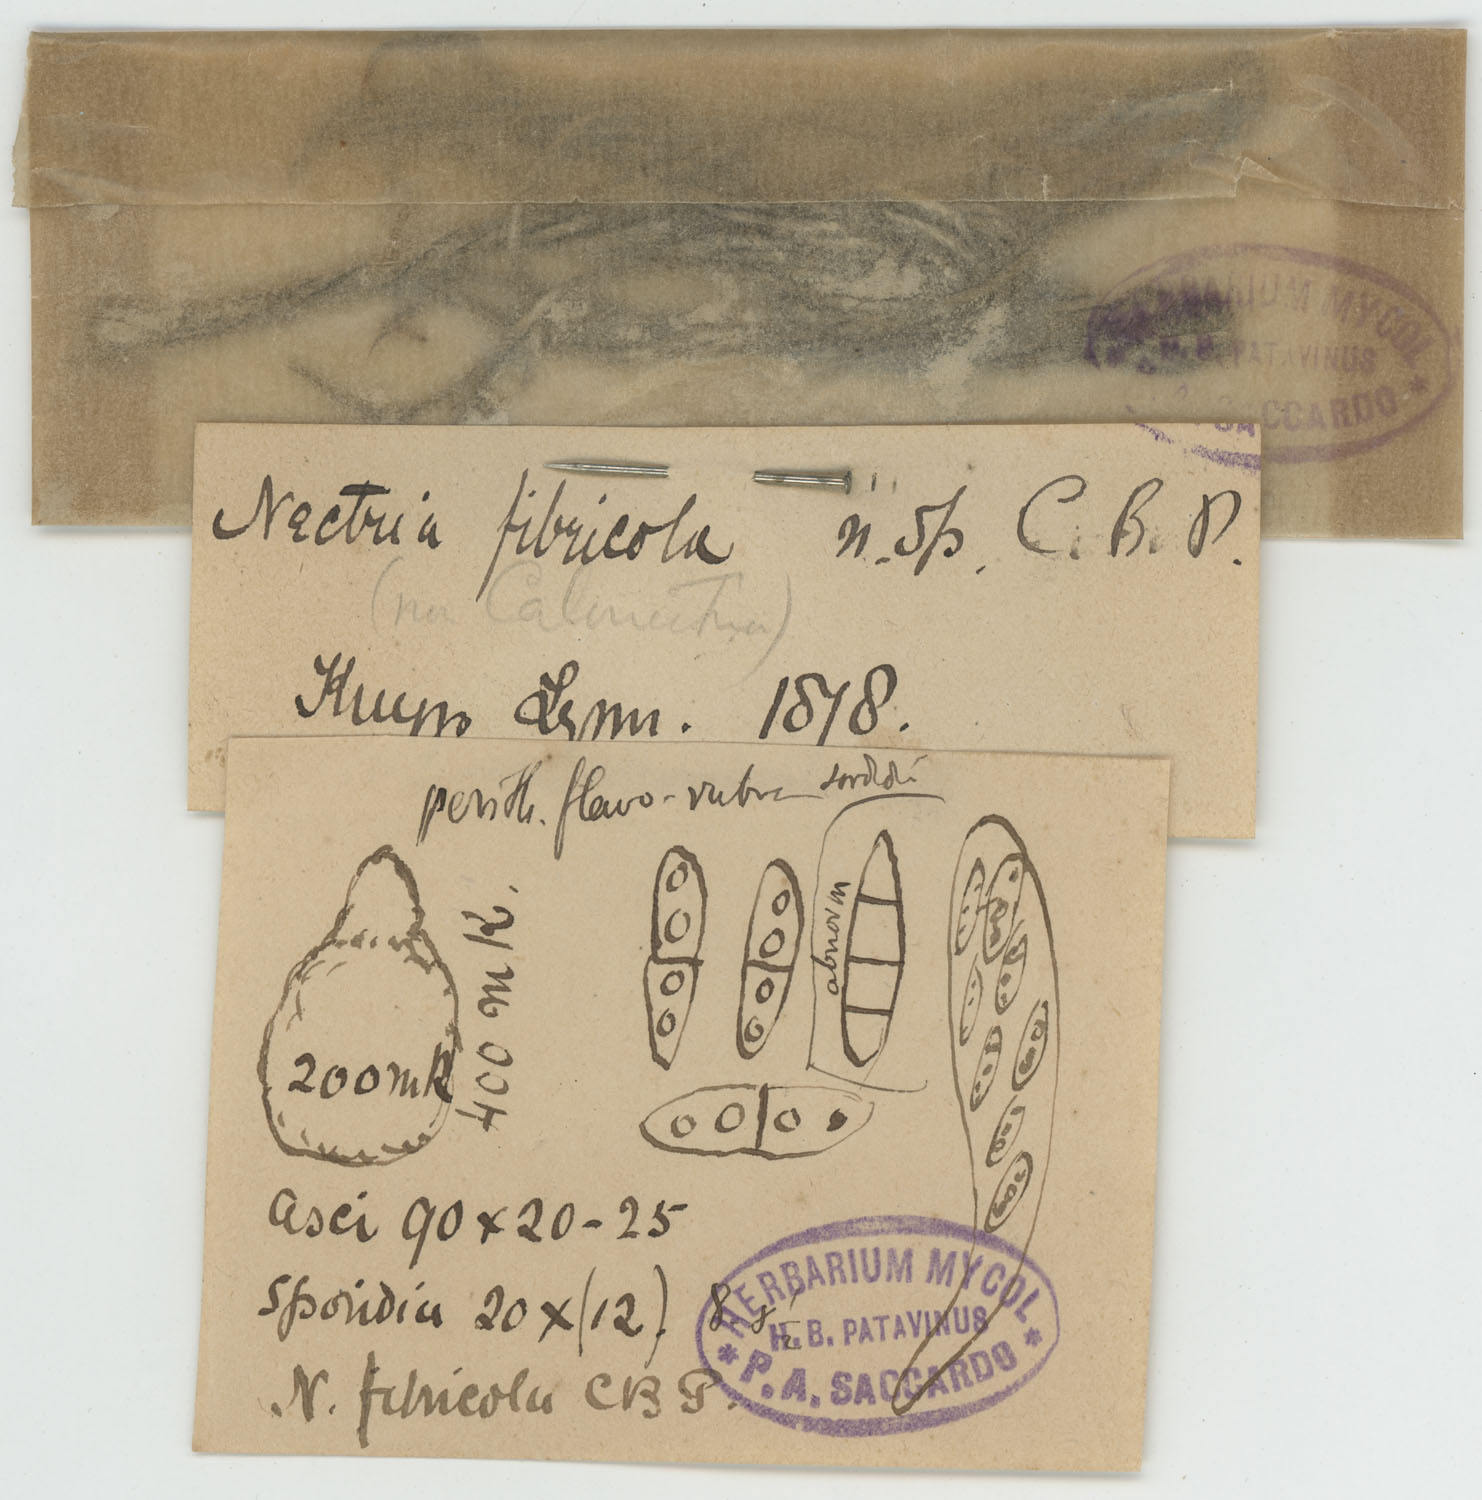 HERBARIUM MYCOL
H. B. PATAVINUS
SACCARDO *
Nectria fibricola n. sp. C. B. P.
(n Calonectria)
1878.
perith. flavo-rubra sordidi
400 mk.
200 mk
abnorm
asci 90 x 20-25
Sporidia 20 x (12) 8
N. fibricola C B P.
HERBARIUM MYCOL
H. B. PATAVINUS
* P. A. SACCARDO *